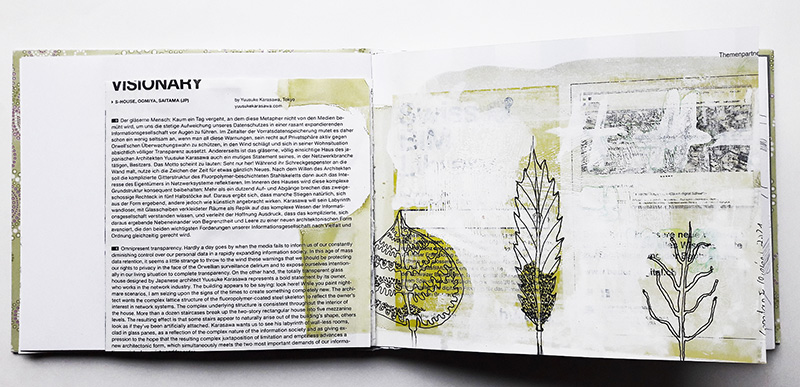 VISIONARY
S-HOUSE, OOMIYA, SAITAMA (JP)
by Yuusuke Karasawa, Tokyo
yuusukekarasawa.com
Der gläserne Mensch: Kaum ein Tag vergeht, an dem diese Metapher nicht von den Medien be-
müht wird, um uns die stetige Aufweichung unseres Datenschutzes in einer rasant expandierenden
Informationsgesellschaft vor Augen zu führen. Im Zeitalter der Vorratsdatenspeicherung mutet es daher
schon ein wenig seltsam an, wenn man all diese Warnungen, sein recht auf Privatsphäre aktiv gegen
Orwell'schen Überwachungswahn zu schützen, in den Wind schlägt und sich in seiner Wohnsituation
absichtlich völliger Transparenz aussetzt. Andererseits ist das gläserne, völlig einsichtige Haus des ja-
panischen Architekten Yuusuke Karasawa auch ein mutiges Statement seines, in der Netzwerkbranche
tätigen, Besitzers. Das Motto scheint zu lauten: Seht nur her! Während ihr Schreckgespenster an die
Wand malt, nutze ich die Zeichen der Zeit für etwas gänzlich Neues. Nach dem Willen des Architekten
soll die komplexe Gitterstruktur des Fluorpolymer-beschichteten Stahlskeletts dann auch das Inte-
resse des Eigentümers in Netzwerksysteme reflektieren. Im Inneren des Hauses wird diese komplexe
Grundstruktur konsequent beibehalten: Mehr als ein dutzend Auf- und Abgänge brechen das zweige-
schossige Rechteck in fünf Halbstöcke auf. Daraus ergibt sich, dass manche Stiegen natürlich, sich
aus der Form ergebend, andere jedoch wie künstlich angebracht wirken. Karasawa will sein Labyrinth
wandloser, mit Glasscheiben verkleideter Räume als Replik auf das komplexe Wesen der Informati-
onsgesellschaft verstanden wissen, und verleiht der Hoffnung Ausdruck, dass das komplizierte, sich
daraus ergebende Nebeneinander von Begrenztheit und Leere zu einer neuen architektonischen Form
avanciert, die den beiden wichtigsten Forderungen unserer Informationsgesellschaft nach Vielfalt und
Ordnung gleichzeitig gerecht wird.
Omnipresent transparency. Hardly a day goes by when the media fails to inform us of our constantly
diminishing control over our personal data in a rapidly expanding information society. In this age of mass
data retention, it seems a little strange to throw to the wind these warnings that we should be protecting
our rights to privacy in the face of the Orwellian surveillance delirium and to expose ourselves intention-
ally in our living situation to complete transparency. On the other hand, the totally transparent glass
house designed by Japanese architect Yuusuke Karasawa represents a bold statement by its owner,
who works in the network industry. The building appears to be saying: look here! While you paint night-
mare scenarios, I am seizing upon the signs of the times to create something completely new. The archi-
tect wants the complex lattice structure of the fluoropolymer-coated steel skeleton to reflect the owner's
interest in network systems. The complex underlying structure is consistent throughout the interior of
the house. More than a dozen staircases break up the two-story rectangular house into five mezzanine
levels. The resulting effect is that some stairs appear to naturally arise out of the building's shape, others
look as if they've been artificially attached. Karasawa wants us to see his labyrinth of wall-less rooms,
clad in glass panes, as a reflection of the complex nature of the information society and as giving ex-
pression to the hope that the resulting complex juxtaposition of limitation and emptiness advances a
new architectonic form, which simultaneously meets the two most important demands of our informa-
Themenpartne